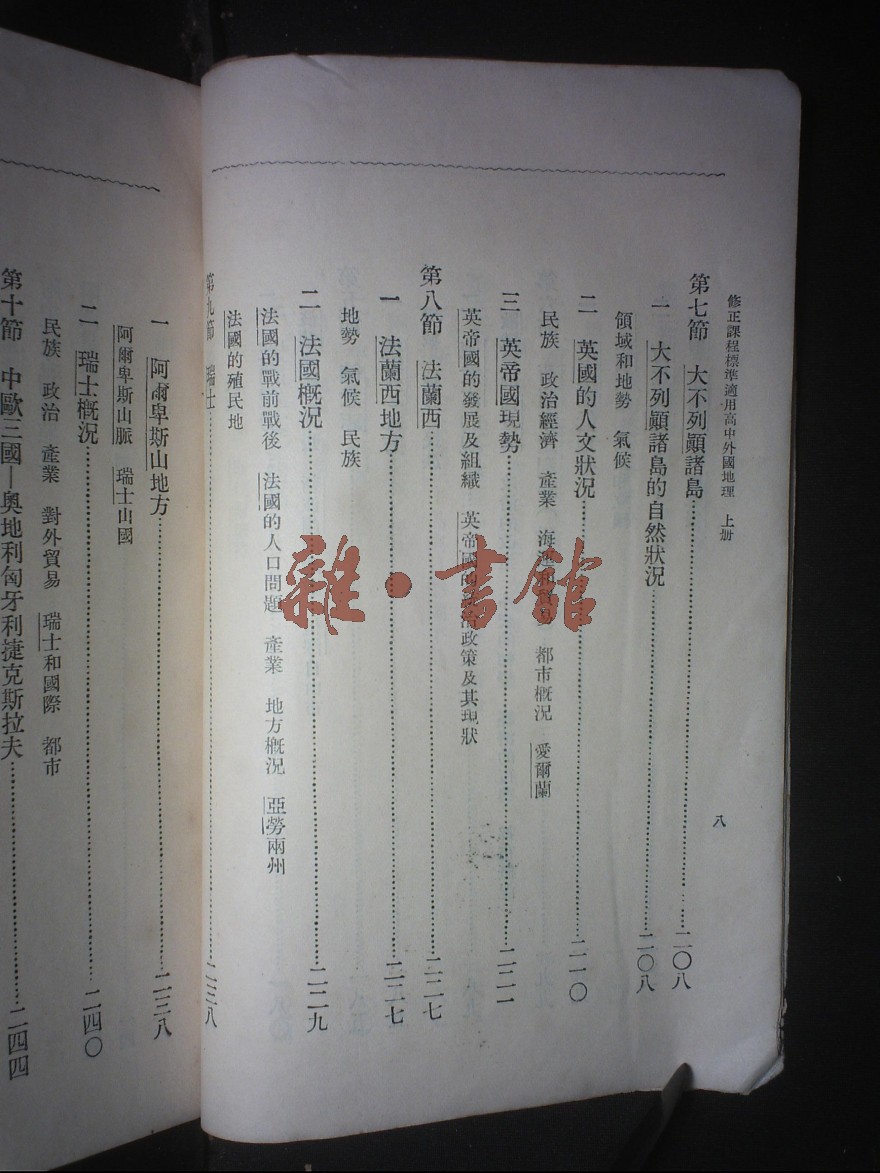 修正課程標準適用高中外國地理　上册
八
第七節　大不列顚諸島……二〇八
一　大不列顚諸島的自然狀況……二〇八
領域和地勢　氣候
二　英國的人文狀況……二一〇
民族　政治經濟　產業　海運　都市概況　愛爾蘭
三　英帝國現勢……二二一
英帝國的發展及組織　英帝國的政治政策及其現狀
第八節　法蘭西……二二七
一　法蘭西地方……二二七
地勢　氣候　民族
二　法國概況……二二九
法國的戰前戰後　法國的人口問題　產業　地方概況　亞勞兩州
法國的殖民地
第九節　瑞士……二三八
一　阿爾卑斯山地方……二三八
阿爾卑斯山脈　瑞士山國
二　瑞士概況……二四〇
民族　政治　產業　對外貿易　瑞士和國際　都市
第十節　中歐三國—奧地利匈牙利捷克斯拉夫……二四四
雜·書館